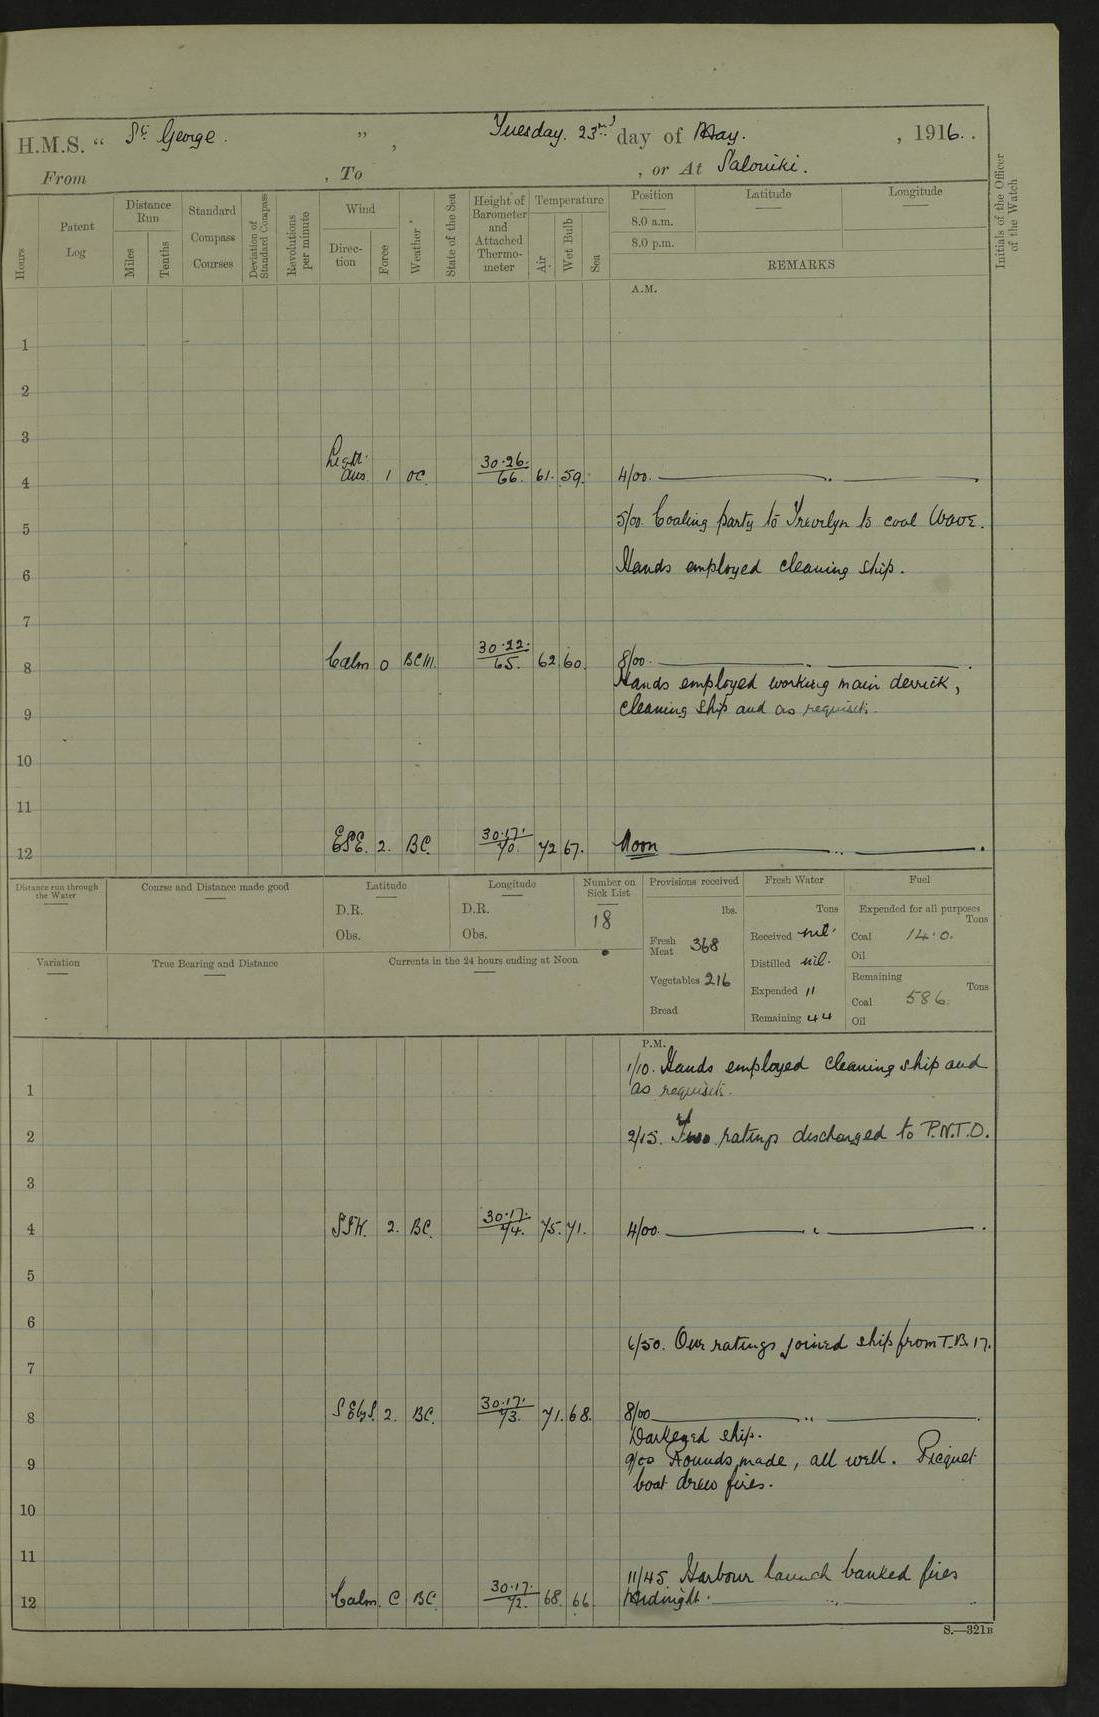 H.M.S. “ St. George. ” , Tuesday. 23rd day of May. , 1916.
From , To , or At Saloniki.
Hours
Patent Log
Distance Run
Miles
Tenths
Standard Compass Courses
Deviation of Standard Compass
Revolutions per minute
Wind
Direction
Force
Weather
State of the Sea
Height of Barometer and Attached Thermometer
Temperature
Air
Wet Bulb
Sea
Position
Latitude
Longitude
8.0 a.m.
8.0 p.m.
REMARKS
Initials of the Officer of the Watch
A.M.
1
2
3
4 Light airs 1 OC. 30·26. 66. 61. 59. 4/00.
5 5/00. Coaling party to Trevelyn to coal Wave.
6 Hands employed cleaning ship.
7
8 Calm 0 BCM. 30·22. 65. 62 60. 8/00.
Hands employed working main derrick,
9 cleaning ship and as requisite.
10
11
12 ESE. 2. BC. 30·17. 70. 72 67. Noon
Distance run through the Water
Course and Distance made good
Latitude
D.R.
Obs.
Longitude
D.R.
Obs.
Number on Sick List
18
Provisions received
lbs.
Fresh Meat 368
Vegetables 216
Bread
Fresh Water
Tons
Received nil.
Distilled nil.
Expended 11
Remaining 44
Fuel
Expended for all purposes
Tons
Coal 14·0.
Oil
Remaining
Tons
Coal 586.
Oil
Variation
True Bearing and Distance
Currents in the 24 hours ending at Noon
P.M.
1/10. Hands employed cleaning ship and
1 as requisite.
2 2/15. Two ratings discharged to P.N.T.O.
3
4 SSW. 2. BC. 30·17. 74. 75. 71. 4/00.
5
6
6/50. ratings joined ship from T.B. 17.
7
8 SEbyS. 2. BC. 30·17. 73. 71. 68. 8/00
Darkened ship.
9 9/00 Rounds made, all well. Picquet
boat drew fires.
10
11
11/45 Harbour launch banked fires
12 Calm. C BC. 30·17. 72. 68. 66 Midnight.
S.—321B